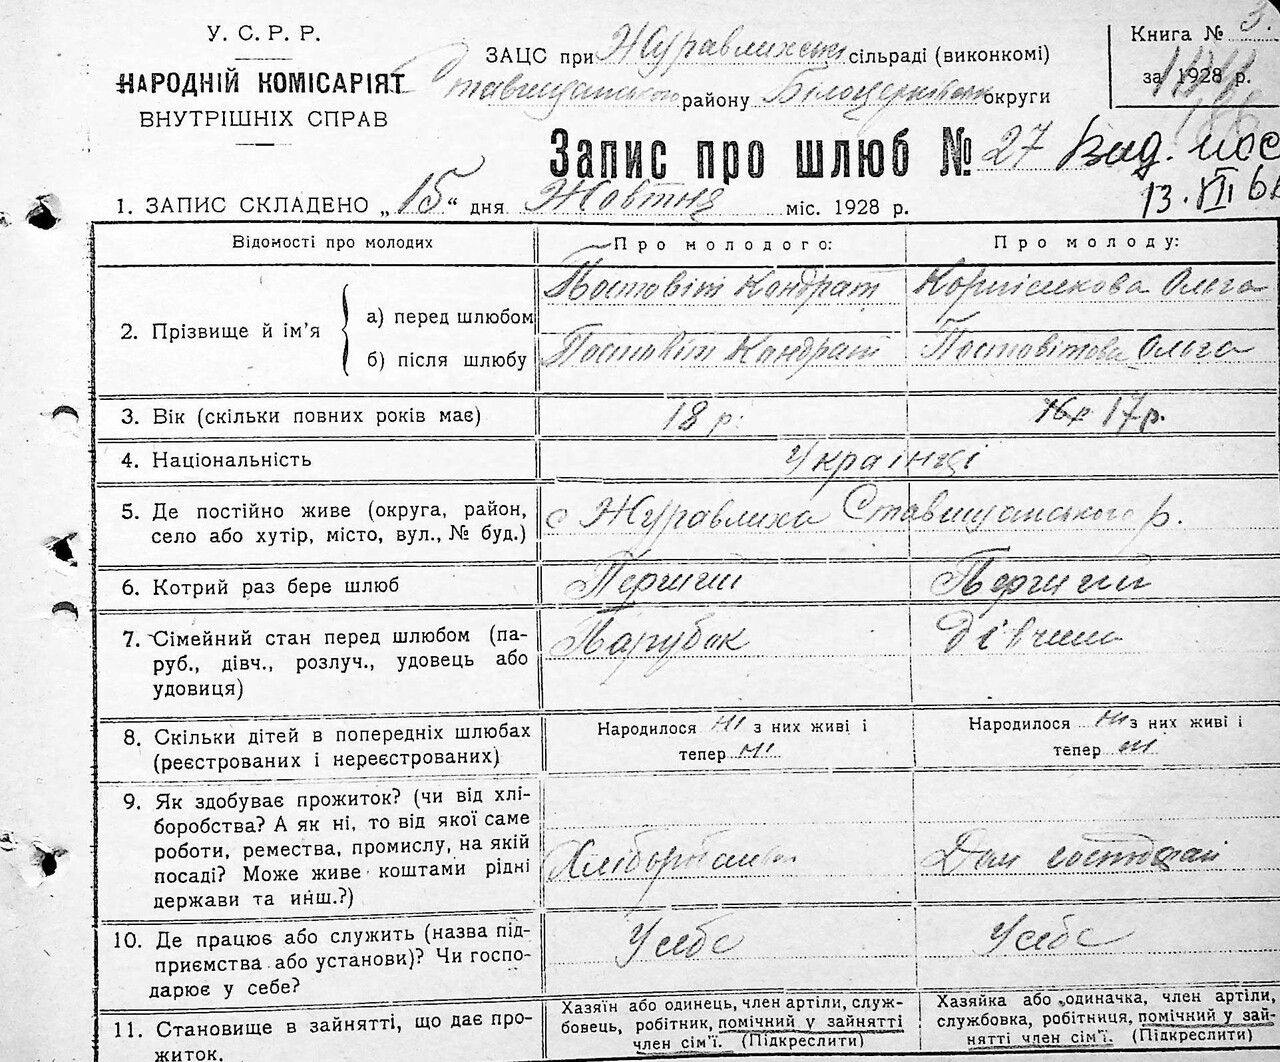 У. С. Р. Р.
НАРОДНІЙ КОМІСАРІЯТ
ВНУТРІШНІХ СПРАВ
ЗАЦС при Журавлихській сільраді (виконкомі)
Ставищанського району Білоцерківськ округи
Книга № 3.
за 1928 р.
188
Запис про шлюб № 27 Вид.
13.VII 61
1. ЗАПИС СКЛАДЕНО „15“ дня Жовтня міс. 1928 р.
Відомості про молодих Про молодого: Про молоду:
2. Прізвище й ім’я
а) перед шлюбом Постовіт Кондрат Ольга
б) після шлюбу Постовіт Кондрат Постовітова Ольга
3. Вік (скільки повних років має) 18 р. 16р 17р.
4. Національність Українці
5. Де постійно живе (округа, район,
село або хутір, місто, вул., № буд.) с Журавлиха Ставищанського р.
6. Котрий раз бере шлюб Перший Перший
7. Сімейний стан перед шлюбом (па-
руб., дівч., розлуч., удовець або
удовиця) Парубок Дівчина
8. Скільки дітей в попередніх шлюбах
(реєстрованих і нереєстрованих)
Народилося ні з них живі і
тепер ні
Народилося ні з них живі і
тепер ні
9. Як здобуває прожиток? (чи від хлі-
боробства? А як ні, то від якої саме
роботи, ремества, промислу, на якій
посаді? Може живе коштами рідні
держави та инш.?)
Дом
10. Де працює або служить (назва під-
приємства або установи)? Чи госпо-
дарює у себе?
У себе У себе
11. Становище в зайнятті, що дає про-
житок.
Хазяїн або одинець, член артіли, служ-
бовець, робітник, помічний у зайнятті
член сім’ї. (Підкреслити)
Хазяйка або одиначка, член артіли,
службовка, робітниця, помічний у зай-
нятті член сім’ї. (Підкреслити)